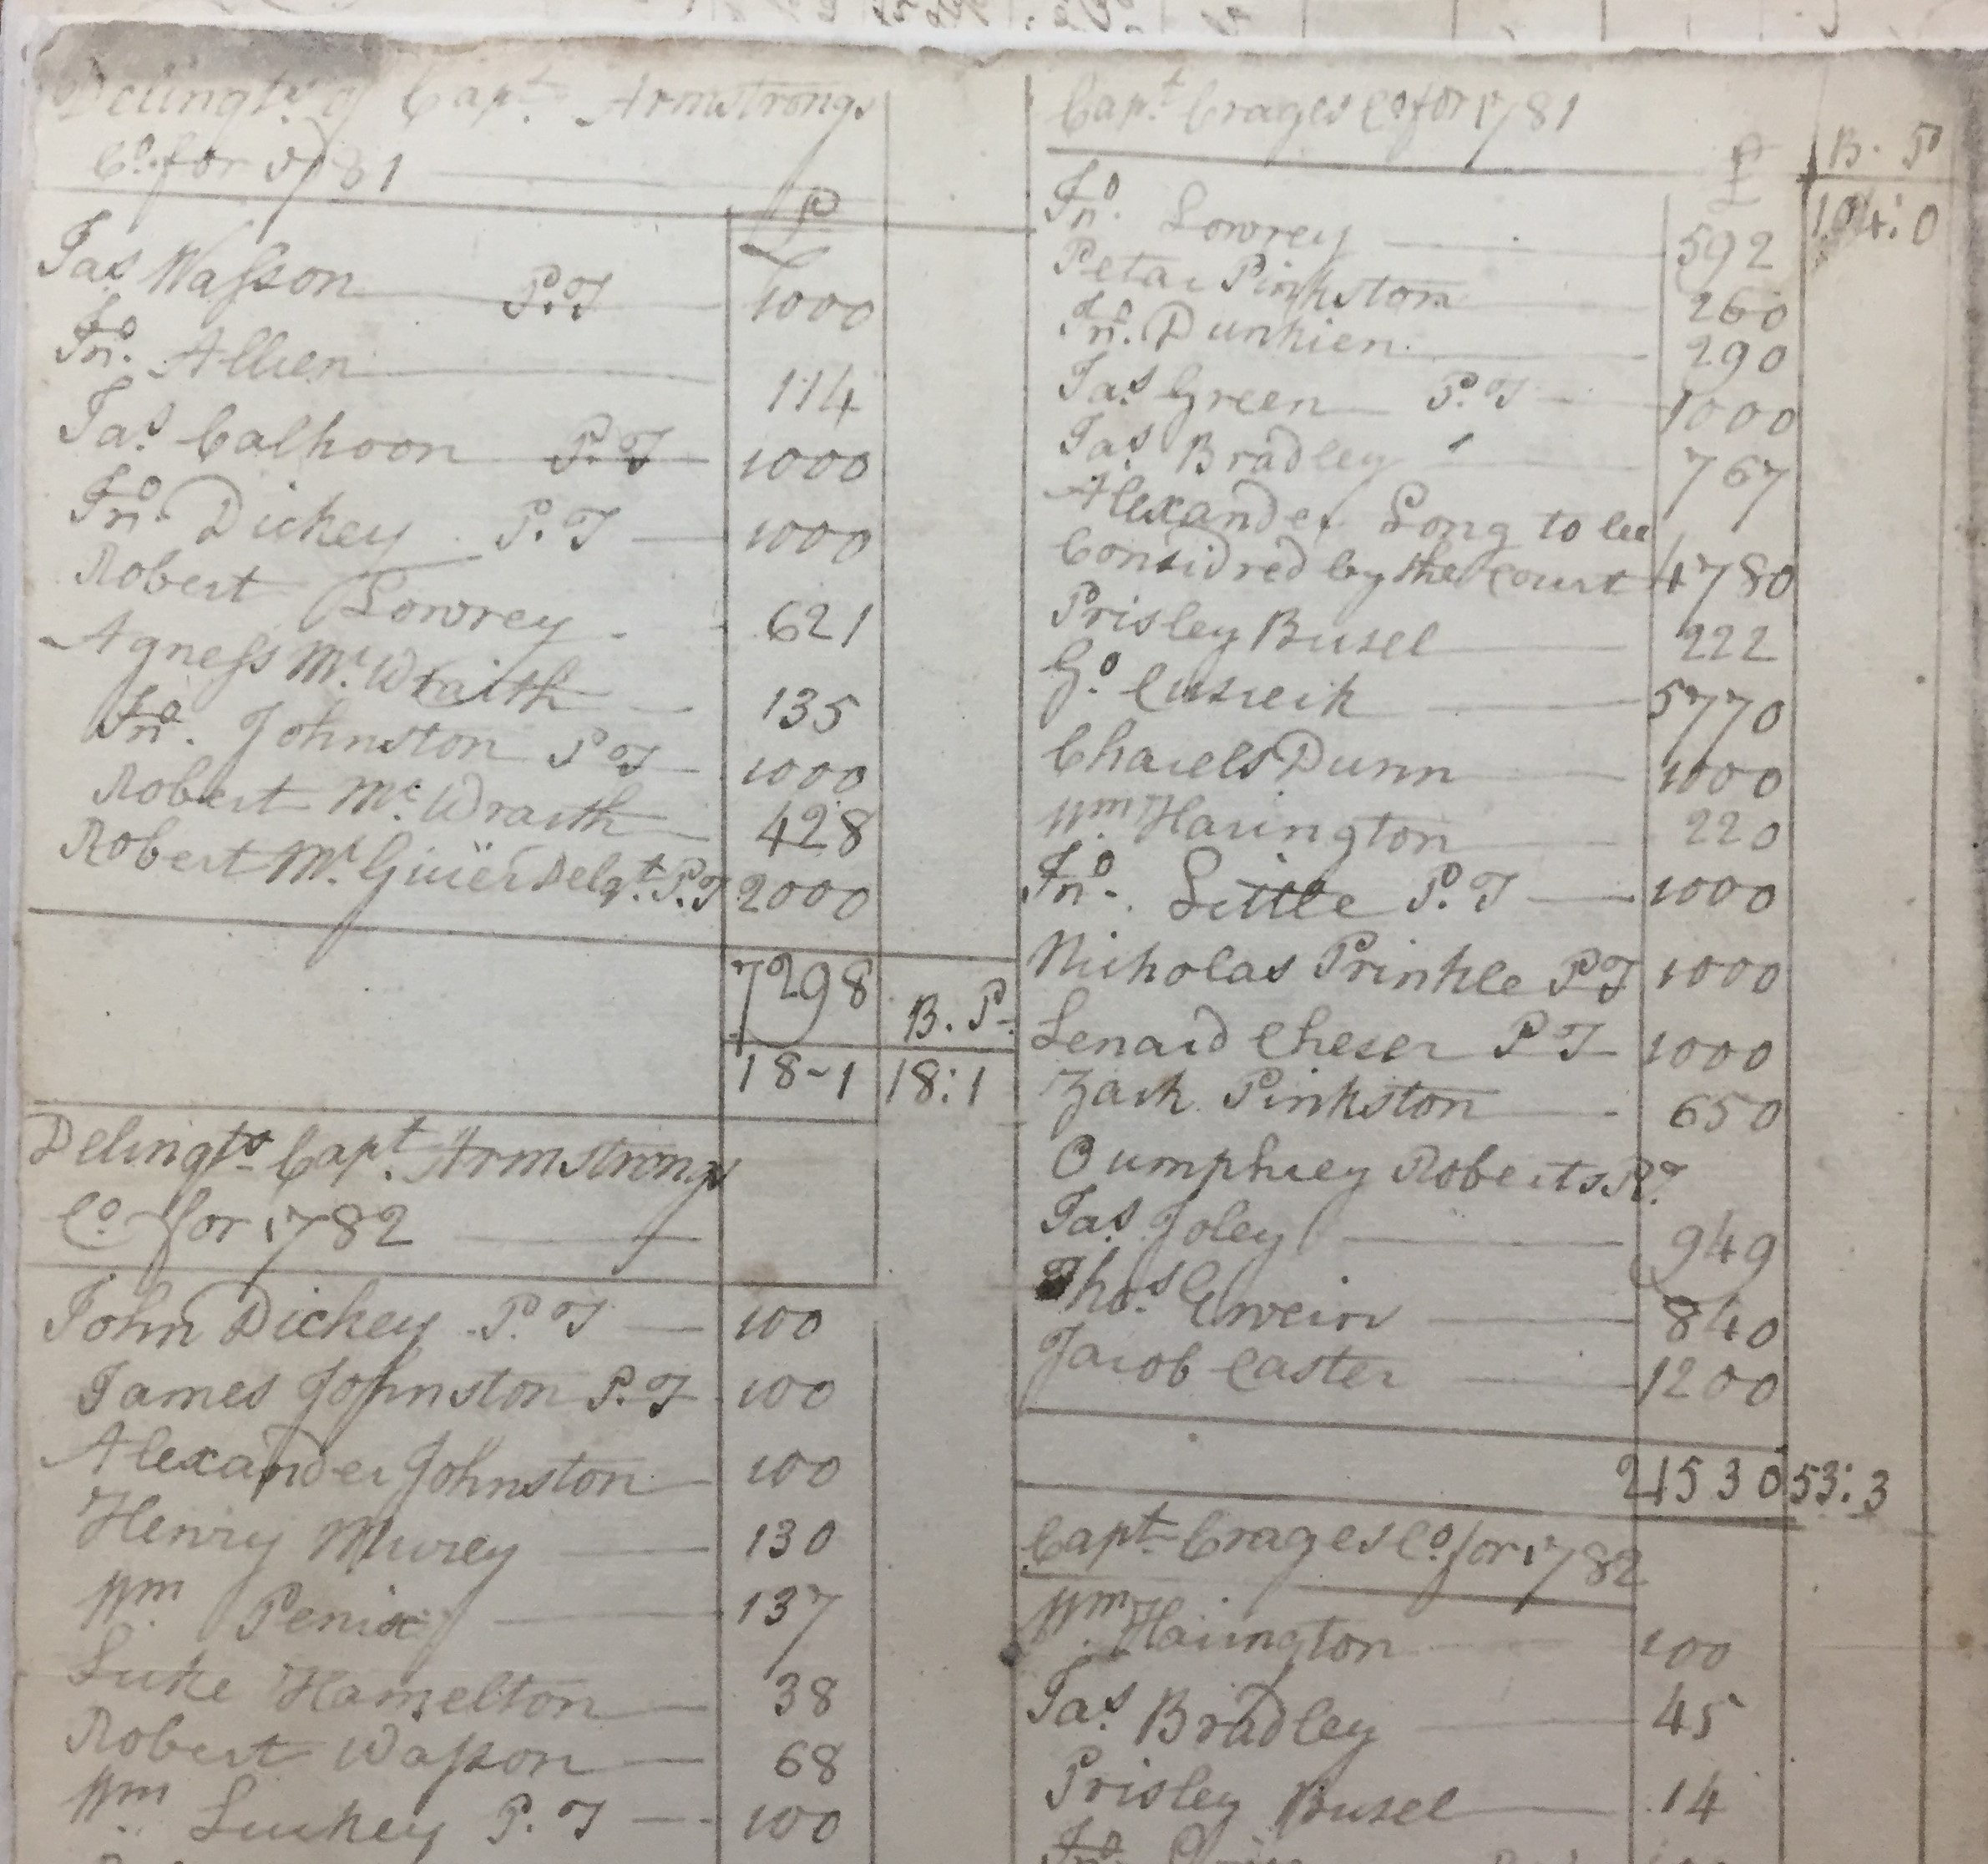 Delingts of Capt. Armstrongs
Co. for 1781
£
Jas Waſson P.T 1000
Jno. Allien 114
Jas Calhoon P.T 1000
Jno. Dickey P.T 1000
Robert Lowrey 621
Agneſs Mc. Wraith 135
Jno. Johnston P T 1000
Robert Mc. Wraith 428
Robert Mc. Guier Delqt. P.T 2000
7298 B. P.
18-1 18:1
Delingts Capt. Armstrongs
Co for 1782
John Dickey P.T 100
James Johnston P.T 100
Alexander Johnston 100
Henry Murey 130
Wm. Penix 137
Luke Hamelton 38
Robert Waſson 68
Wm. Luckey P.T 100
Capt. Crages Co for 1781
£ B. P
Jno. Lowrey 592 104:0
Petar Pinkston 260
Jno. Dunkien 290
Jas. Green P.T 1000
Jas. Bradley 767
Alexander Long to be
Considred by the Court 4780
Prisley Busel 222
Go. Cusick 5770
Charels Dunn 1000
Wm. Harington 220
Jno. Little P.T 1000
Nicholas Prinkle P T 1000
Lenard Cheser P T 1000
Zach Pinkston 650
Oumphrey Roberts P.T.
Jas. Joley 949
Thos. Erwein 840
Jacob Caster 1200
21530 53:3
Capt. Crages Co. for 1782
Wm. Harington 100
Jas. Bradley 45
Prisley Busel 14
Jno.